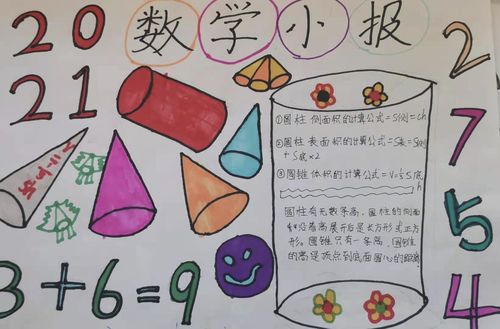 数学小报
20
21
2
7
5
4
V=⅓Sh
①圆柱侧面积的计算公式=S侧=ch
②圆柱表面积的计算公式=S表=S侧
+S底×2
③圆锥体积的计算公式=V=⅓S底
h
圆柱有无数条高，圆柱的侧面
沿着高展开后是长方形或正方
形。圆锥只有一条高，圆锥
的高是顶点到底面圆心的距离
3+6=9